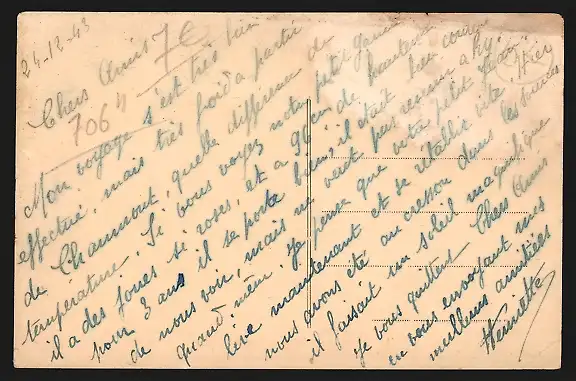 24-12-43
7€
706"
Chers Amis
Mon voyage s'est très bien
effectué, mais très froid à partir
de Chaumont, quelle différence de
température. Si vous voyez notre petit
il a des joues si roses, et a 96 cm de hauteur
pour 3 ans il se porte bien, il était bien
de nous voir, mais ne veut pas revenir à
quand même. Je pense que votre petit Jean
lève maintenant et se rétablit vite. Hier
nous avons été au cresson dans les
il faisait un soleil magnifique
Je vous quitte Chers Amis
en vous envoyant mes
meilleures amitiés
Henriette